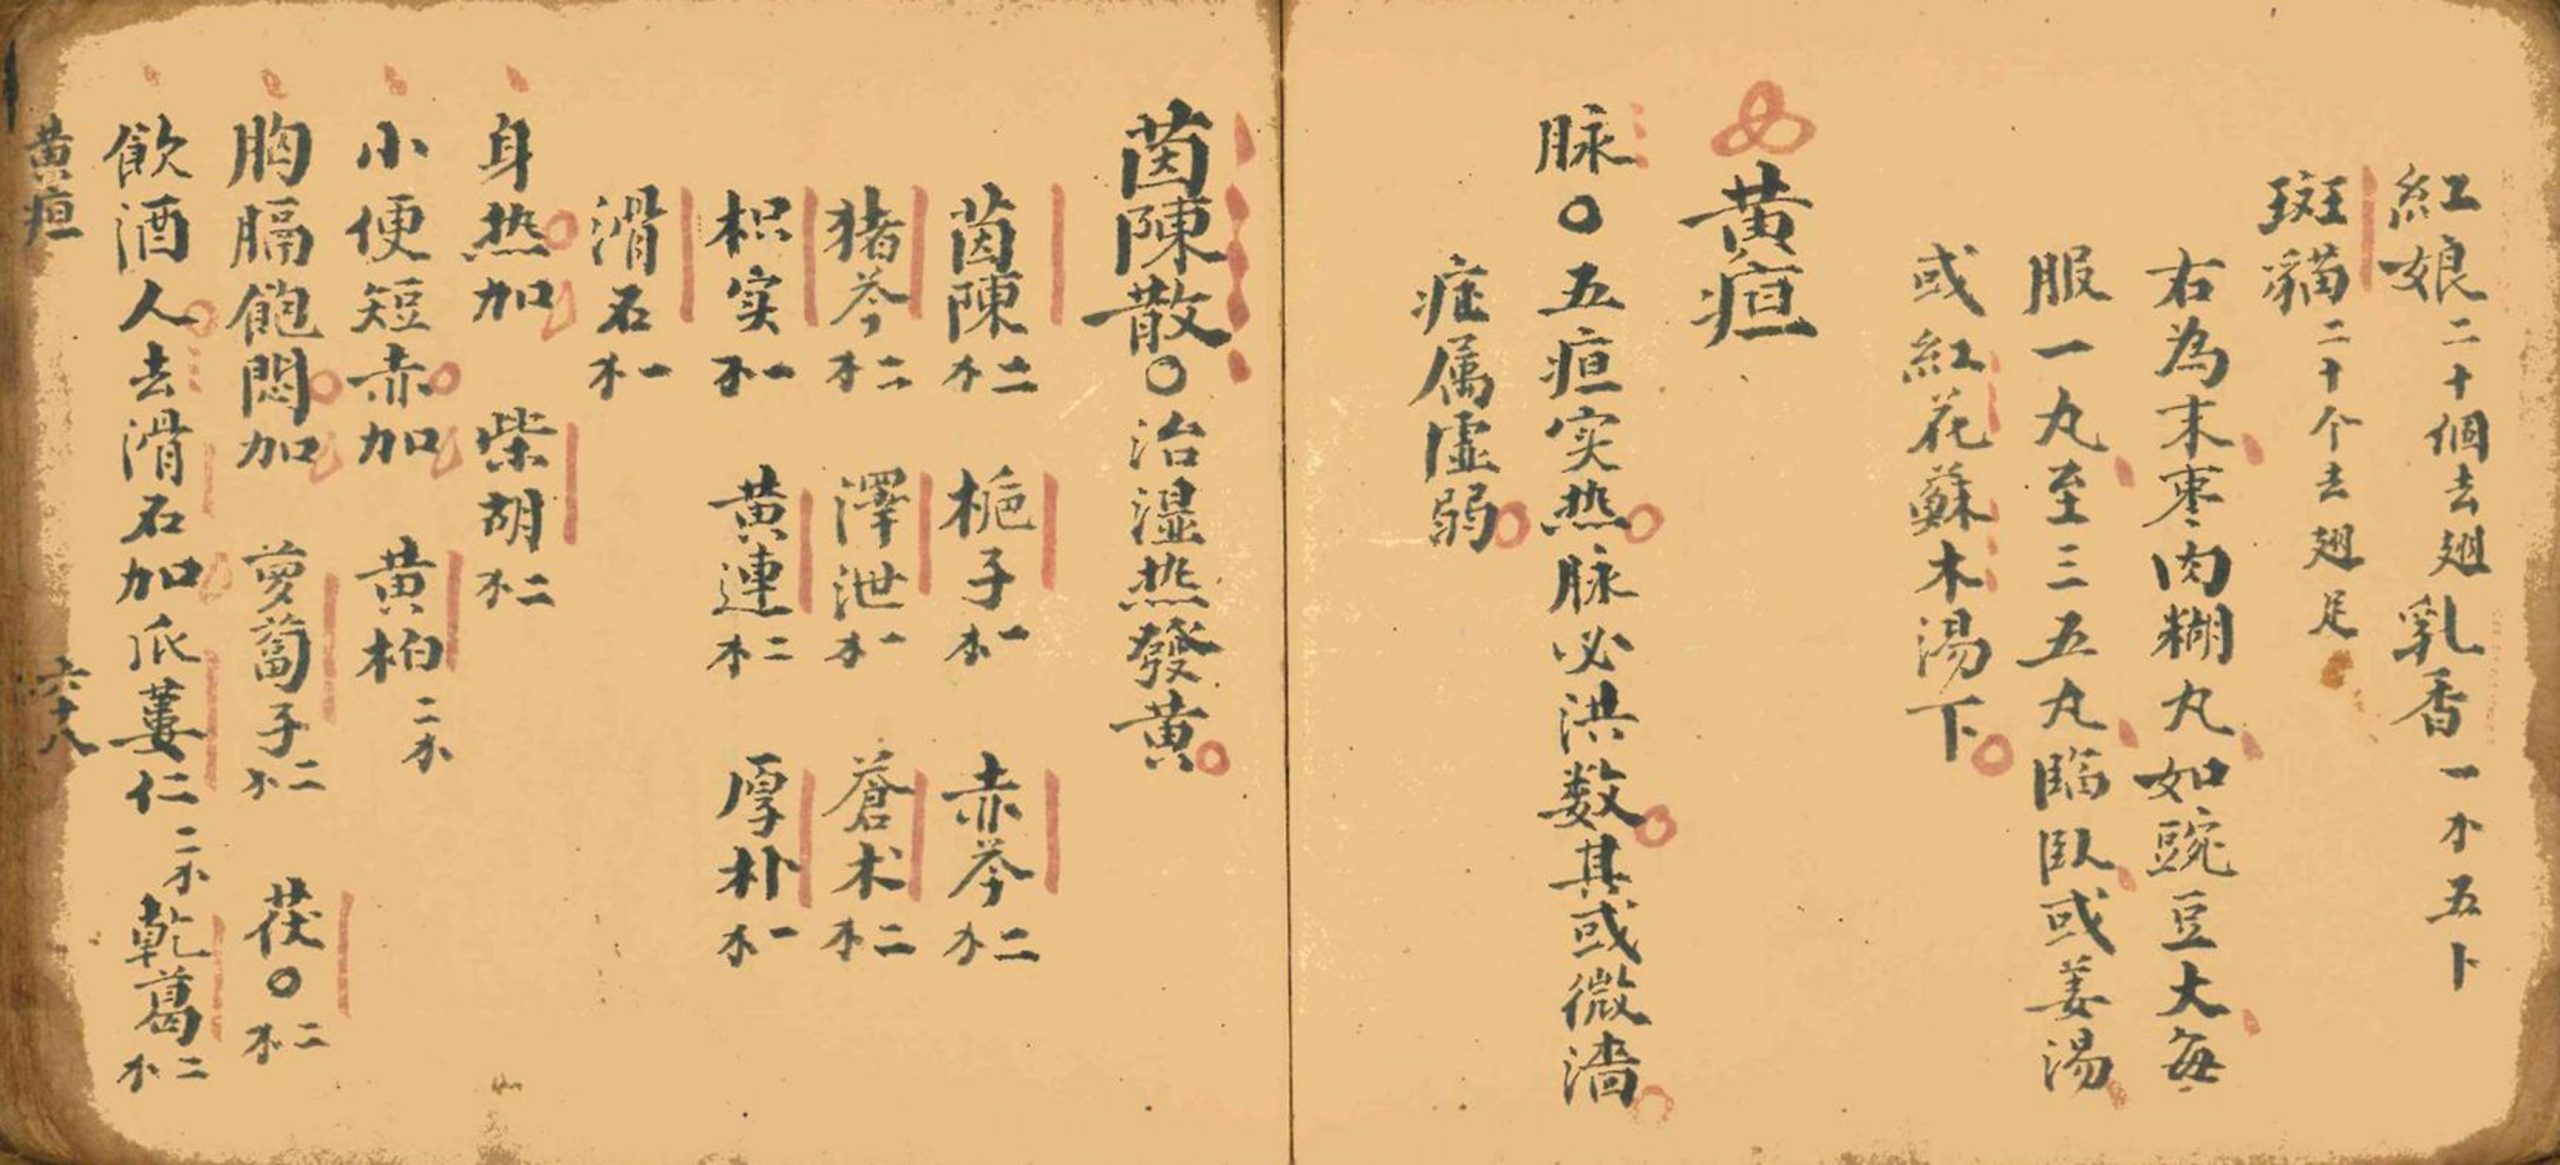 紅娘二十個去翅 乳香一个五卜
斑貓二十个去翅足
右為末枣肉糊丸如豌豆大每
服一丸至三五丸臨臥或姜湯
或紅花蘇木湯下
黃疸
脉〇五疸实热脉必洪数其或微濇
症属虛弱
茵陳散〇治湿热發黄
茵陳二 梔子一 赤苓二
猪苓二 澤泄一 蒼术二
枳实一 黄連二 厚朴一
滑石一
身热加 柴胡二
小便短赤加 黄柏二
胸膈飽悶加 蔔子二 茯〇二
飲酒人去滑石加瓜蔞仁二 乾葛二
黄疸 六十八